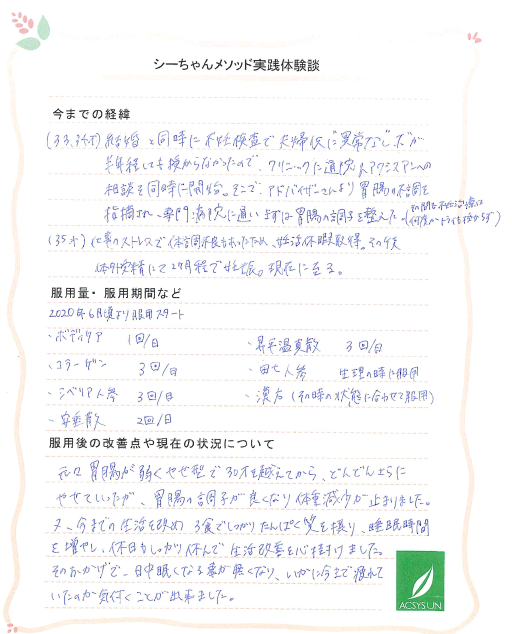 シーちゃんメソッド実践体験談
今までの経緯
(33,34才) 結婚と同時に不妊検査で夫婦供に"異常なし"だが
半年経しても授からなかったので、クリニックに通院&アクシスアンへの
相談を同時に開始。そこで、アドバイザーさんより胃腸の不調を
指摘され、専門病院に通いまずは胃腸の調子を整えた。(その間も不妊治療は
何度かトライも授からず)
(35才) 仕事のストレスで体調不良もあったため、妊活休暇取得。その後
体外受精にて2ヶ月程で妊娠。現在に至る。
服用量・服用期間など
2020年6月頃より服用スタート
・ボディケア 1回/日
・昇平温真散 3回/日
・コラーゲン 3回/日
・田七人参 生理の時に服用
・シベリア人参 3回/日
・漢方(その時の状態に合わせて服用)
・安垂散 2回/日
服用後の改善点や現在の状況について
元々胃腸が弱くやせ型で30才を越えてから、どんどんさらに
やせていったが、胃腸の調子が良くなり体重減少が止まりました。
又、今までの生活を改め3食でしっかりたんぱく質を摂り、睡眠時間
を増やし、休日もしっかり休んで生活改善を心掛けました。
そのおかげで、日中眠くなる事が無くなり、いかに今まで疲れて
いたのか気付くことが出来ました。
ACSYSUN